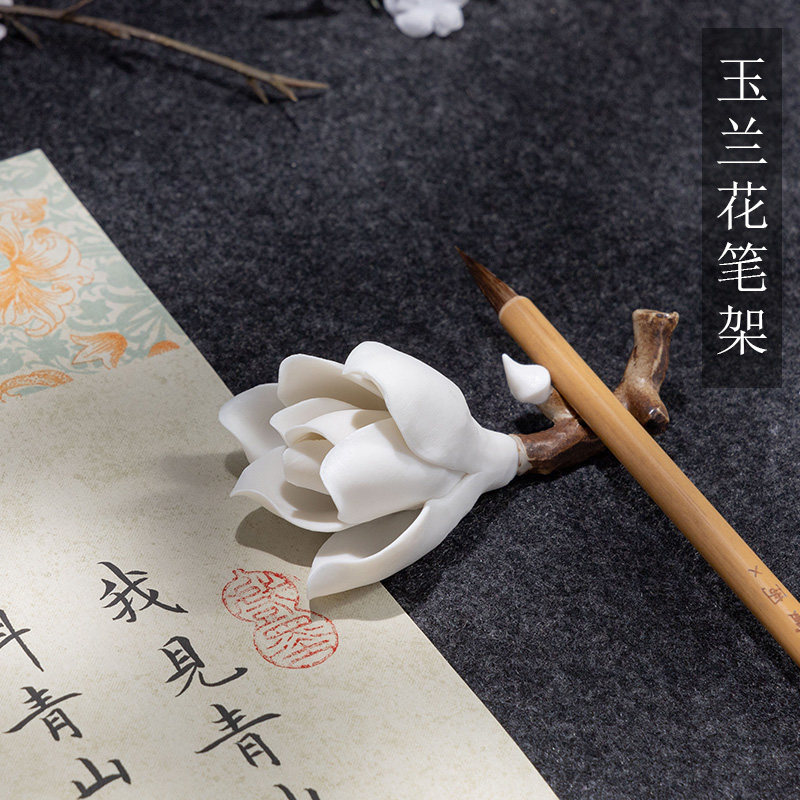 玉兰花笔架
我见青山
青山